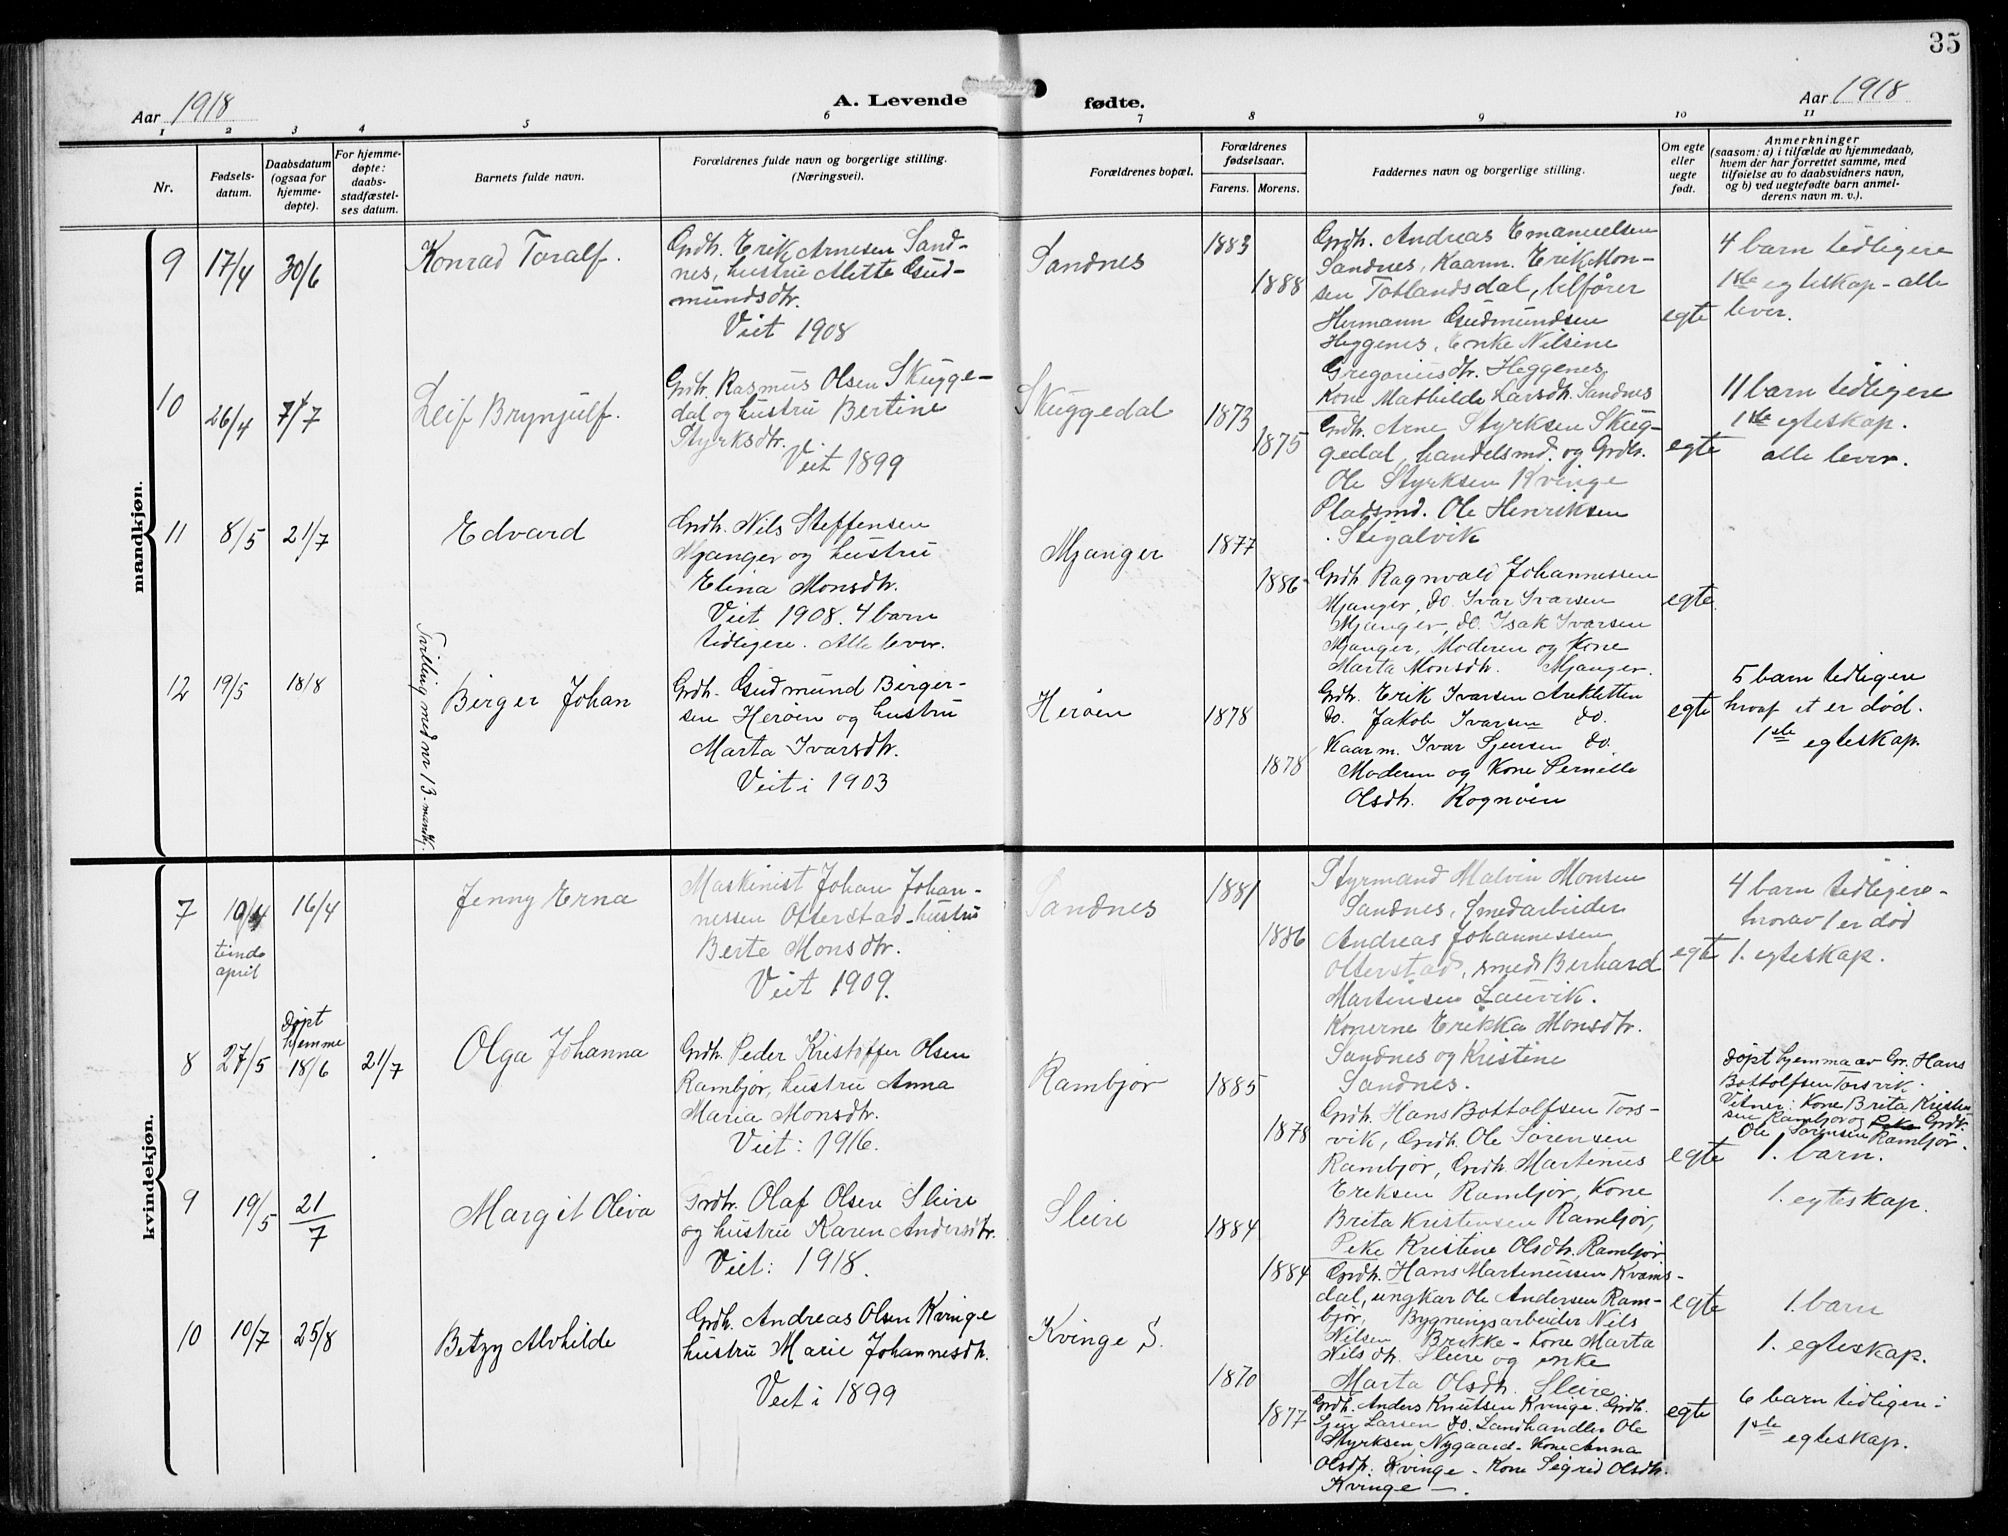 35
Aar 1918
A. Levende
fødte.
Aar 1918
1 2 3 4 5 6 7 8 9 10 11
Nr.
Fødsels-
datum.
Daabsdatum
(ogsaa for
hjemme-
døpte).
For hjemme-
døpte:
daabs-
stadfæstel-
ses datum.
Barnets fulde navn.
Forældrenes fulde navn og borgerlige stilling.
(Næringsvei).
Forældrenes bopæl.
Forældrenes
fødselsaar.
Farens. Morens.
Faddernes navn og borgerlige stilling.
Om egte
eller
uegte
født.
Anmerkninger
(saasom: a) i tilfælde av hjemmedaab,
hvem der har forrettet samme, med
tilføielse av to daabsvidners navn,
og b) ved uegtefødte barn anmel-
derens navn m. v.).
mandkjøn.
9 17/4 30/6
Konrad Toralf.
Grdb. Erik Arnesen Sand-
nes, hustru Alette Gud-
mundsdtr.
Viet 1908
Sandnes
1883
1888
Grdb. Andreas Emanuelsen
Sandnes, Kaarm. Erik Mon-
sen Totlandsdal, lilfører
Hermann Gudmundsen
Heggenes, Enke Nilsine
Gregoriusdtr. Heggenes,
Kone Mathilde Larsdtr. Sandnes
egte
4 barn tidligere
1ste egteskap - alle
lever.
10 26/4 7/7
Leif Brynjulf.
Grdb. Rasmus Olsen Skugge-
dal og hustru Bertine
Styrksdtr.
Viet 1899
Skuggedal
1873
1875
Grdb. Arne Styrksen Skug-
gedal, handelsmd. og Grdb.
Ole Styrksen Kvinge
Pladsmd. Ole Henriksen
Stigalvik
egte
11 barn tidligere
1ste egteskap.
alle lever.
11 8/5 21/7
Edvard
Grdb. Nils Steffensen
Mjanger og hustru
Elina Monsdtr.
Viet 1908. 4 barn
tidligere. Alle lever.
Mjanger
1877
1886
Grdb Ragnvald Johannessen
Mjanger, do. Ivar Ivarsen
Mjanger, do. Isak Ivarsen
Mjanger, Moderen og Kone
Marta Monsdtr. Mjanger.
egte
12 19/5 18/8
Tvilling med nr 13 - mandkj.
Birger Johan
Grdb. Gudmund Birger-
sen Herøen og hustru
Marta Ivarsdtr.
Viet i 1903
Herøen
1878
1878
Grdb. Erik Ivarsen Arekletten
do. Jakob Ivarsen do.
Kaarm. Ivar Sjursen do.
Moderen og Kone Pernelle
Olsdtr. Rognøen
egte
5 barn tidligere
hvoraf et er død.
1ste egteskap.
kvindekjøn.
7 10/4 16/4
tiende
april
Jenny Erna
Maskinist Johan Johan-
nessen Otterstad - hustru
Berte Monsdtr.
Viet 1909.
Sandnes
1881
1886
Styrmand Malvin Monsen
Sandnes, Smedarbeider
Andreas Johannessen
Otterstad, smed Berhard
Martinsen Lauvik.
Konerne Erikka Monsdtr.
Sandnes og Kristine
Sandnes.
egte
4 barn tidligere -
hvorav 1 er død
1. egteskap.
8 27/5
døpt
hjemme
18/6 21/7
Olga Johanna
Grdb. Peder Kristoffer Olsen
Rambjør, hustru Anna
Maria Monsdtr.
Viet: 1916.
Rambjør
1885
1878
Grdb. Hans Bottolfsen Tors-
vik, Grdb. Ole Sørensen
Rambjør, Grdb. Martinus
Eriksen Rambjør, Kone
Brita Kristensen Rambjør,
Peke Kristine Olsdtr. Rambjør
egte
døpt hjemma av Gr. Hans
Bottolfsen Torsvik.
Vitner: Kone Brita Kristen-
sen Rambjør og Grdb.
Ole Sørensen Rambjør.
1. barn.
1. egteskap.
9 19/5 21/7
Margit Oliva
Grdb. Olaf Olsen Sleire
og hustru Karen Andersdtr.
Viet: 1918.
Sleire
1884
1884
Grdb. Hans Martinussen Kvams-
dal, ungkar Ole Andersen Ram-
bjør, Bygningsarbeider Nils
Nilsen Brekke - Kone Marta
Nilsdtr. Sleire og enke
Marta Olsdtr. Sleire
egte
1. barn
1. egteskap.
10 10/7 25/8
Betzy Alvhilde
Grdb. Andreas Olsen Kvinge
hustru Marie Johannesdtr.
Viet i 1899
Kvinge S.
1870
1877
Grdb. Anders Knutsen Kvinge. Grdb.
Sjur Larsen do. Landhandler Ole
Styrksen, Nygaard - Kone Anna
Olsdtr. Kvinge - Kone Sigrid Olsdtr.
Kvinge -.
egte
6 barn tidligere:
1ste
egteskap.